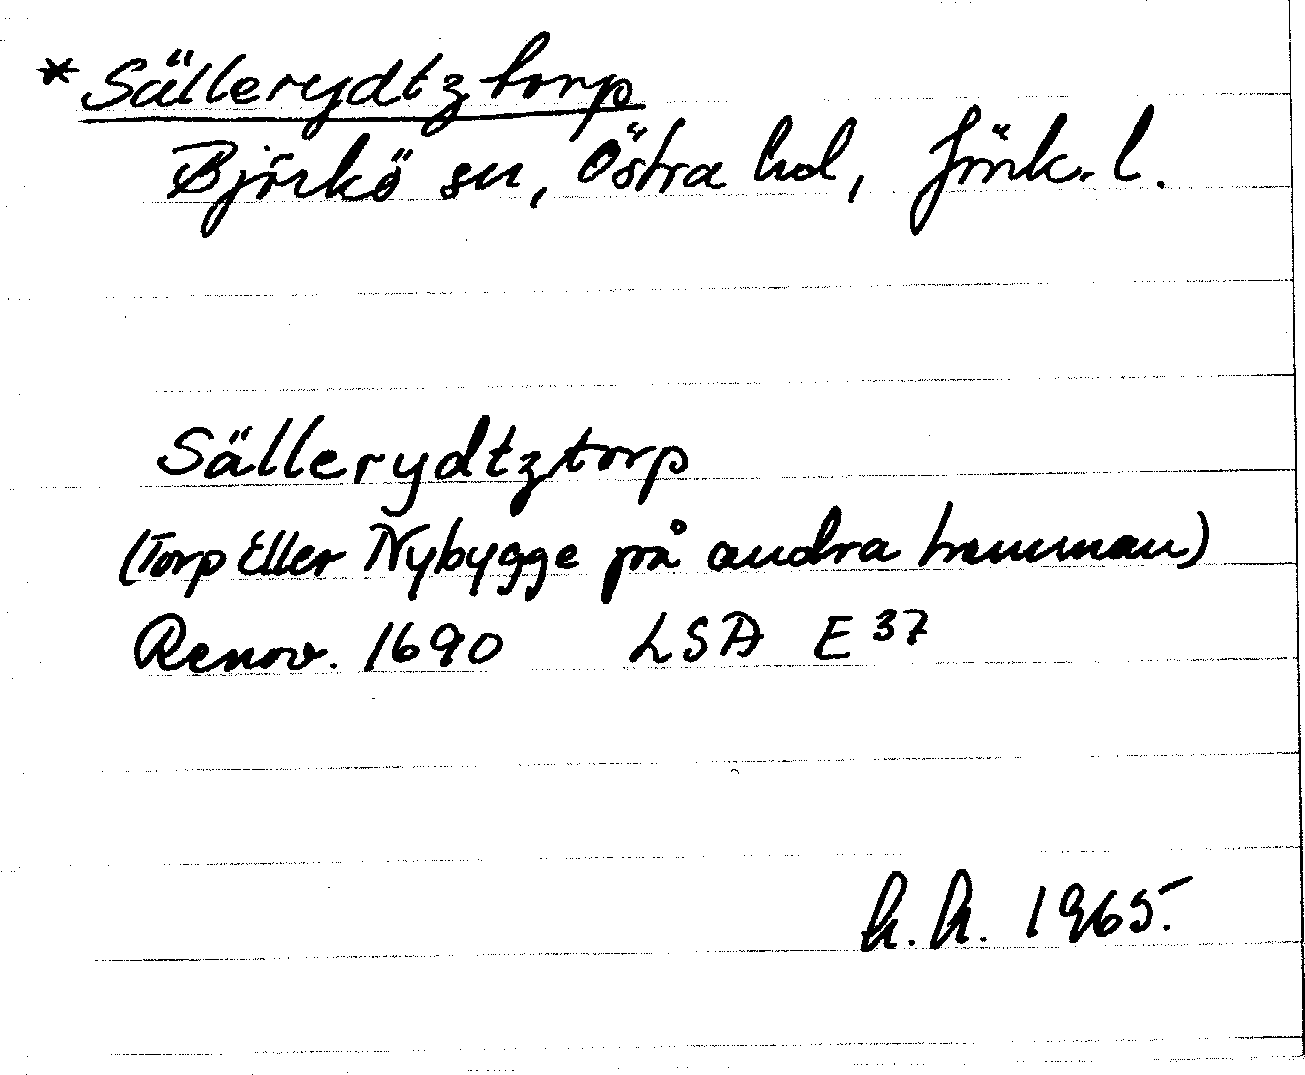 *Sällerydtztorp
Björkö sn, Östra hd, Jönk. l.
Sällerydtztorp
(Torp Eller Nybygge på andra hemman)
Renov. 1690 LSA E 37
h.h. 1965.